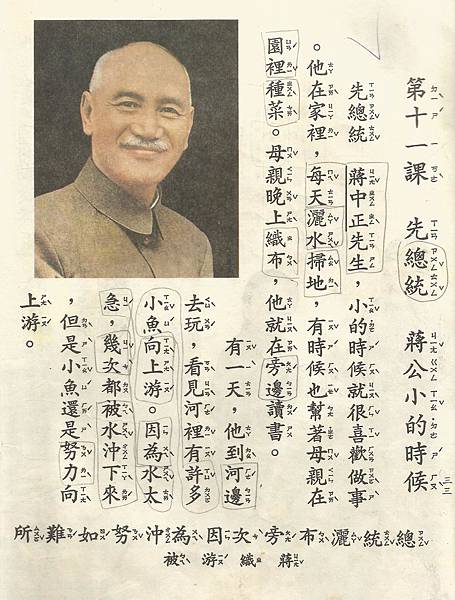 第十一課　先總統　蔣公小的時候
三三
先總統　蔣中正先生，小的時候就很喜歡做事
。他在家裡，每天灑水掃地，有時候也幫著母親在
園裡種菜。母親晚上織布，他就在旁邊讀書。
有一天，他到河邊
去玩，看見河裡有許多
小魚向上游。因為水太
急，幾次都被水沖下來
，但是小魚還是努力向
上游。
總統灑布旁次因為沖努如難所
蔣織游被